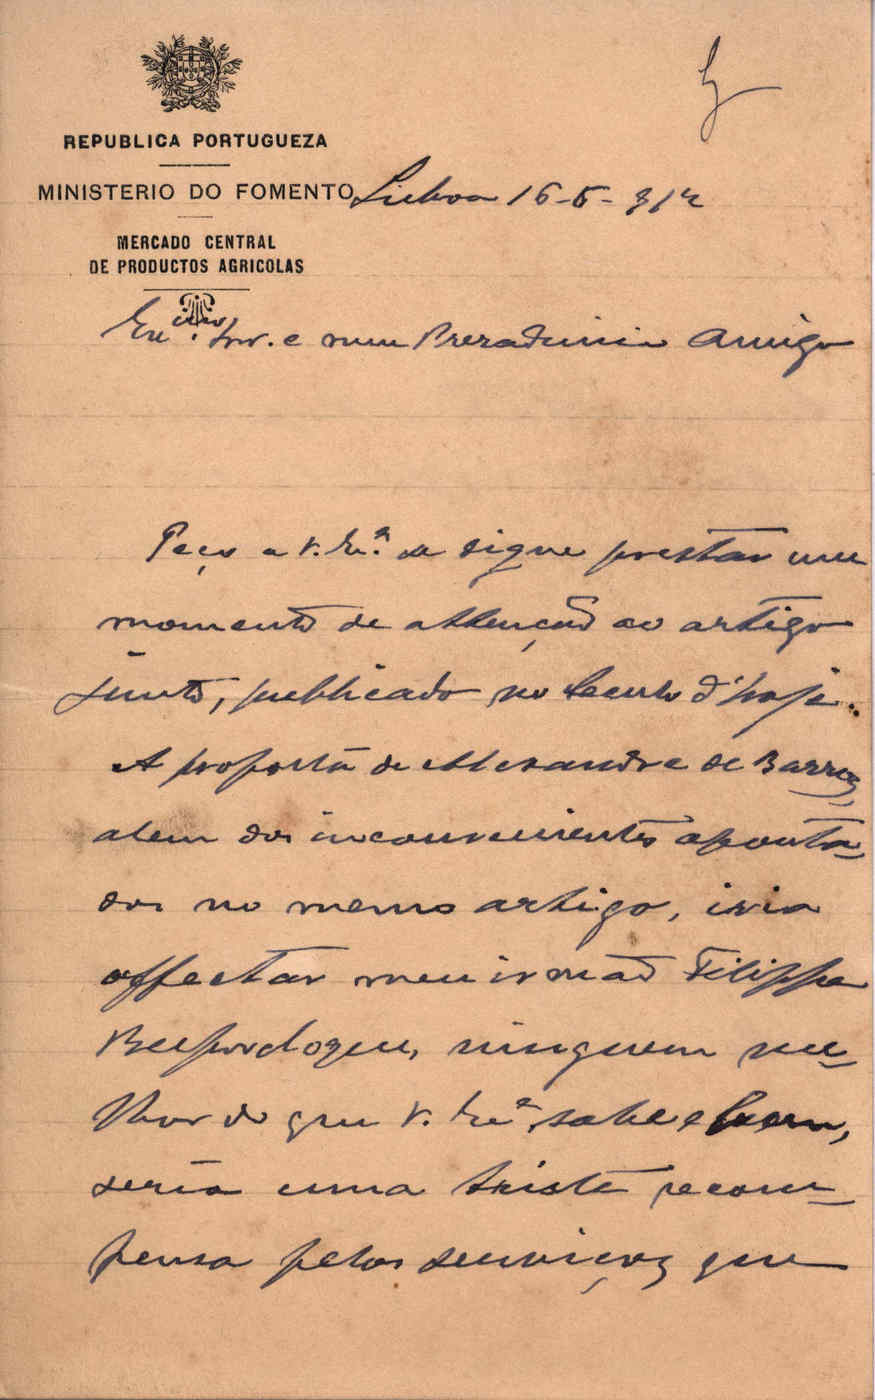 REPUBLICA PORTUGUEZA
MINISTERIO DO FOMENTO
Lisboa 16-5-912
MERCADO CENTRAL
DE PRODUCTOS AGRICOLAS
Exmo. Snr. e meu Prezadissimo Amigo
Peço a V. Exª. se digne prestar um
momento de attenção ao artigo
junto, publicado no Seculo d'hoje.
A proposta de Alexandre de Barros,
alem dos inconvenientes aponta-
dos no mesmo artigo, iria
affectar meu irmão Filippe
que, ninguem me-
lhor do que V. Exª sabe e bem,
seria uma triste recom-
pensa pelos serviços que